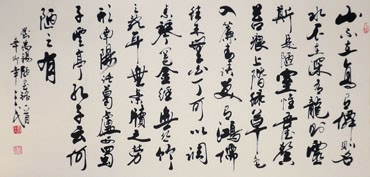 山不在高有僊則名
水不在深有龍則靈
斯是陋室惟吾德馨
苔痕上階綠草色
入簾青談笑有鴻儒
往來無白丁可以調
素琴閱金經無絲竹
之亂耳無案牘之勞
形南陽諸葛廬西蜀
子雲亭孔子云何
陋之有
劉禹錫陋室銘
辛卯年